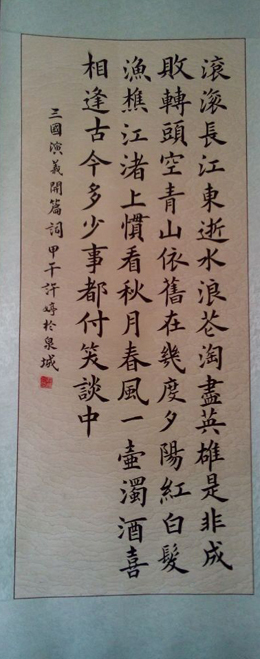 滾滾長江東逝水浪花淘盡英雄是非成
敗轉頭空青山依舊在幾度夕陽紅白髮
漁樵江渚上慣看秋月春風一壺濁酒喜
相逢古今多少事都付笑談中
三國演義開篇詞 甲午許婷於泉城